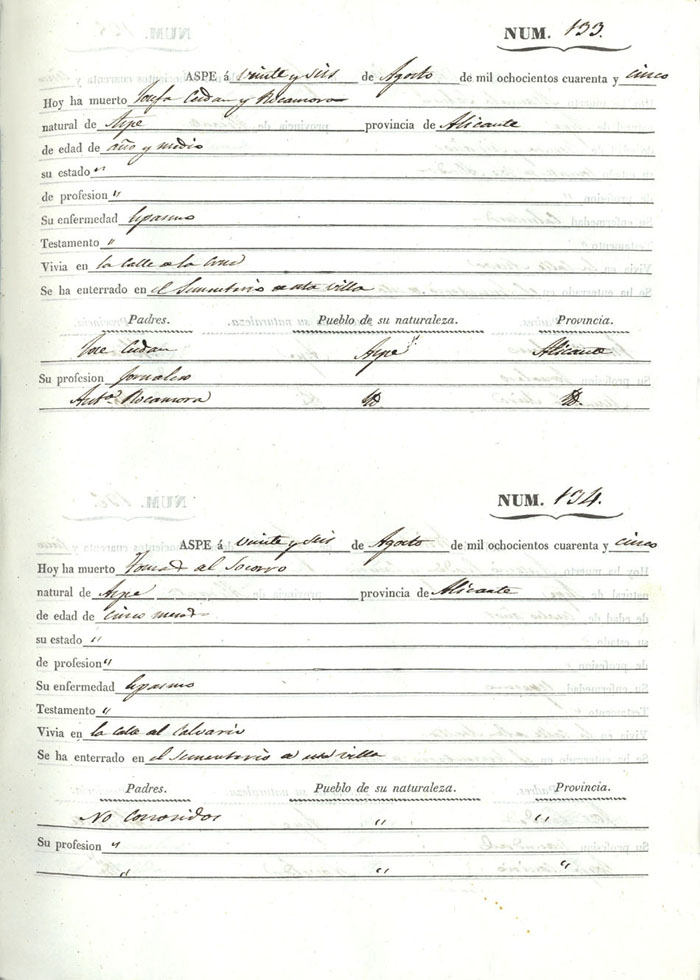 NUM. 133.
ASPE á veinte y seis de Agosto de mil ochocientos cuarenta y cinco
Hoy ha muerto Josefa Cerdan y Rocamora
natural de Aspe provincia de Alicante
de edad de año y medio
su estado "
de profesion "
Su enfermedad Espasmo
Testamento "
Vivia en la Calle de la Cruz
Se ha enterrado en el Sementerio de esta Villa
Padres. Pueblo de su naturaleza. Provincia.
Jose Cerdan Aspe Alicante
Su profesion Jornalero
Anta. Rocamora Id Id.
NUM. 134.
ASPE á veinte y seis de Agosto de mil ochocientos cuarenta y cinco
Hoy ha muerto del Socorro
natural de Aspe provincia de Alicante
de edad de cinco meses
su estado "
de profesion "
Su enfermedad Espasmo
Testamento "
Vivia en la Calle del Calvario
Se ha enterrado en el Sementerio de esta villa
Padres. Pueblo de su naturaleza. Provincia.
No Conosidos " "
Su profesion "
" " "